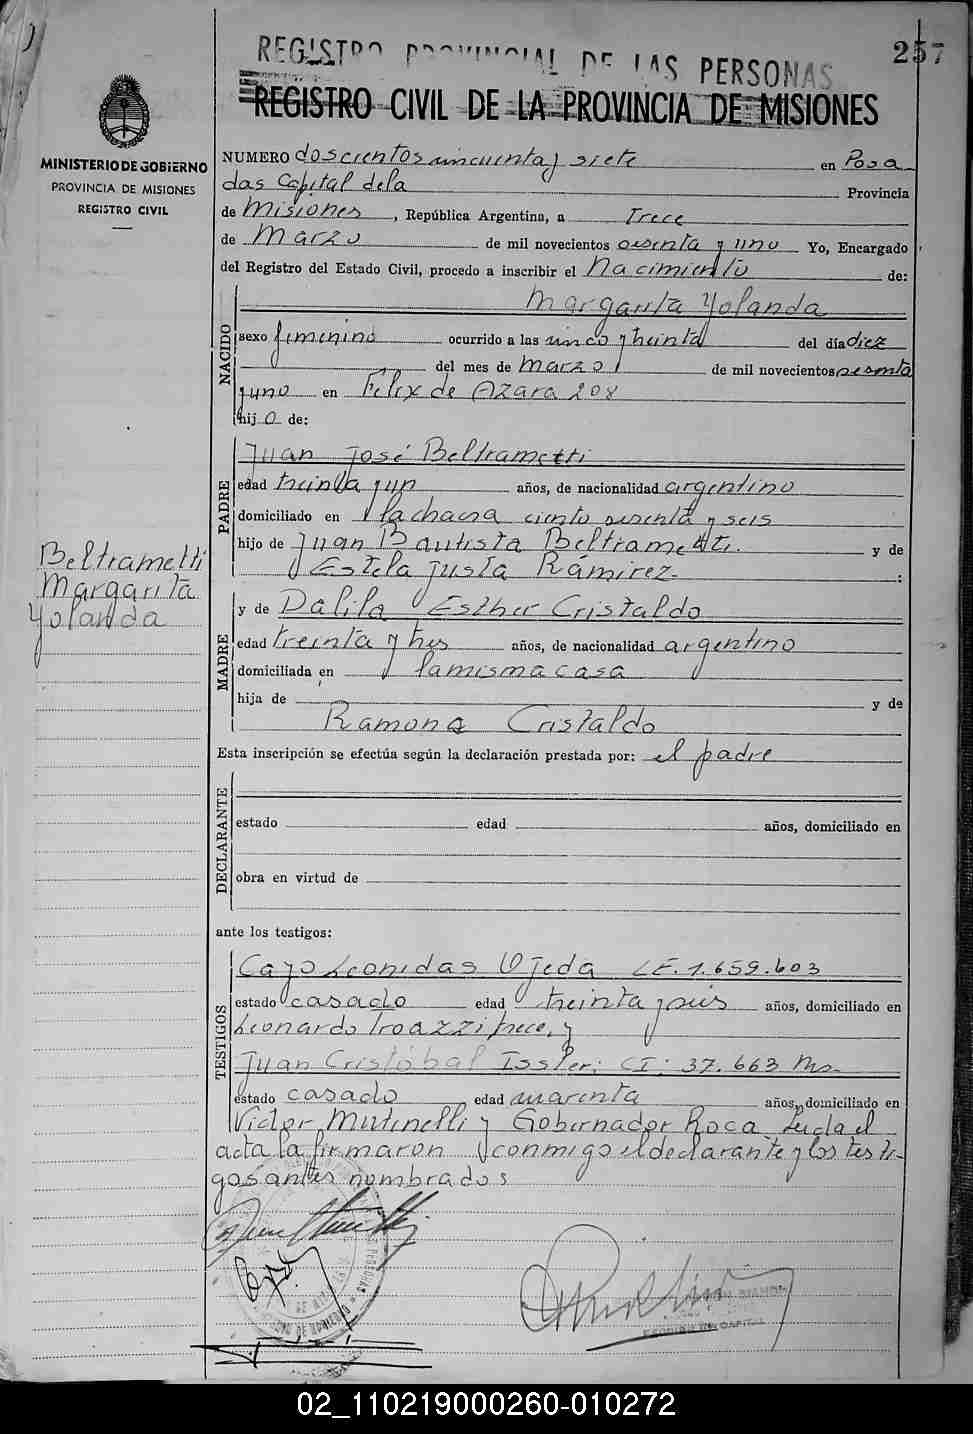 257
REGISTRO PROVINCIAL DE LAS PERSONAS
REGISTRO CIVIL DE LA PROVINCIA DE MISIONES
MINISTERIO DE GOBIERNO
PROVINCIA DE MISIONES
REGISTRO CIVIL
NUMERO doscientos cincuenta y siete en Posa
das Capital de la Provincia
de Misiones, República Argentina, a Trece
de Marzo de mil novecientos sesenta y uno Yo, Encargado
del Registro del Estado Civil, procedo a inscribir el Nacimiento de:
NACIDO
Margarita Yolanda
sexo femenino ocurrido a las cinco y treinta del día diez
del mes de Marzo de mil novecientos sesenta
y uno en Félix de Azara 208
hij a de:
PADRE
Juan José Beltrametti
edad treinta y un años, de nacionalidad argentino
domiciliado en la chacra ciento sesenta y seis
hijo de Juan Bautista Beltrametti. y de
Estela Justa Ramirez- :
Beltrametti
Margarita
Yolanda
MADRE
y de Dalila Esther Cristaldo
edad treinta y tres años, de nacionalidad argentino
domiciliada en la misma casa
hija de y de
Ramona Cristaldo
Esta inscripción se efectúa según la declaración prestada por: el padre
DECLARANTE
estado edad años, domiciliado en
obra en virtud de
ante los testigos:
TESTIGOS
Cayo Leonidas Ojeda LE. 1.659.603
estado casado edad treinta y seis años, domiciliado en
Leonardo Troazzi trece, y
Juan Cristóbal Issler: CI: 37.663 Ms.
estado casado edad cuarenta años, domiciliado en
Victor Mutinelli y Gobernador Roca Leida el
acta la firmaron conmigo el declarante y los testi-
gos antes nombrados
02_110219000260-010272